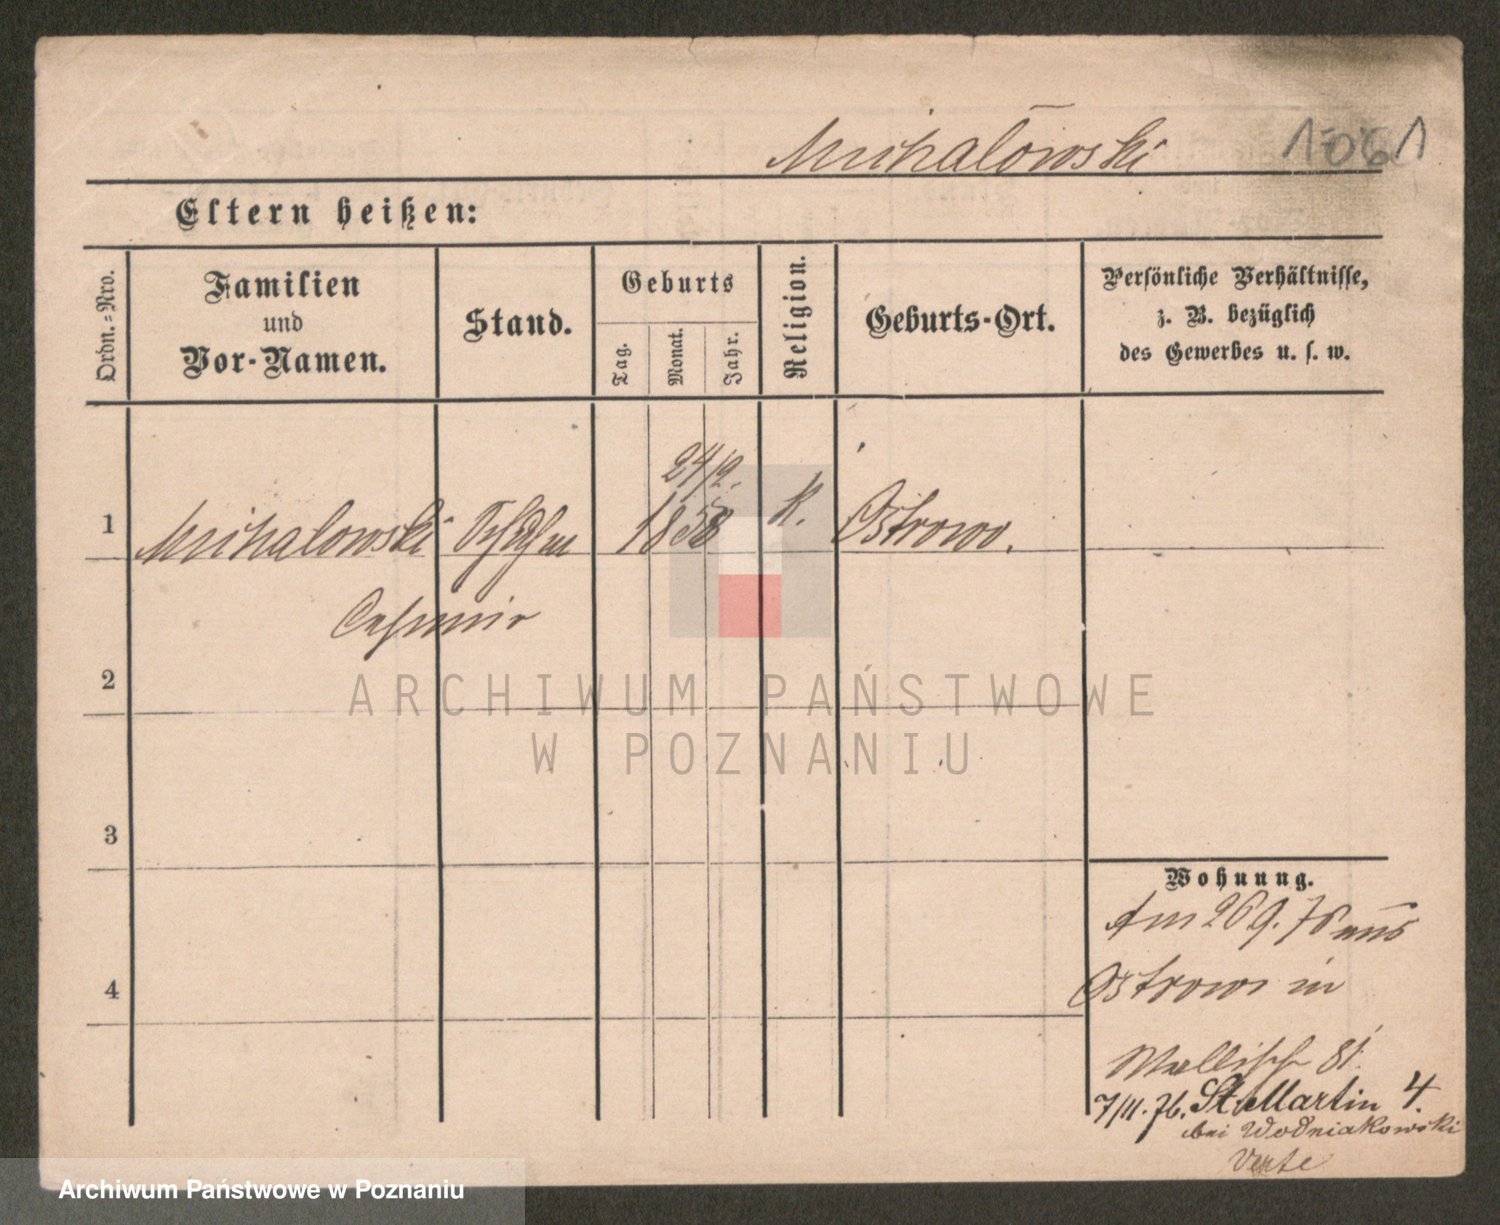 Mihalowski 1061
Eltern heißen:
Ordn.-Nro.
Familien
und
Vor-Namen.
Stand.
Geburts
Tag.
Monat.
Jahr.
Religion.
Geburts-Ort.
Persönliche Verhältnisse,
z. B. bezüglich
des Gewerbes u. s. w.
24/2.
1 Mihalowski 1858 k. Ostrowo.
Casimir
2
3
4
Wohnung.
Am 26 9. 76 aus
Ostrowo in
Wallisch 81.
7/11. 76. St. Martin 4.
bei Wodniakowski
Verte
ARCHIWUM PAŃSTWOWE
W POZNANIU
Archiwum Państwowe w Poznaniu